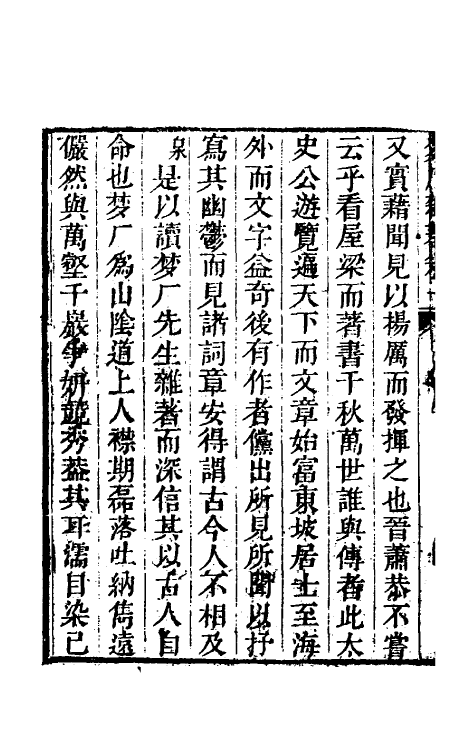 又實藉聞見以楊厲而發揮之也晉蕭恭不嘗
云乎看屋梁而著書千秋萬世誰與傳者此太
史公遊覽遍天下而文章始富東坡居士至海
外而文字益奇後有作者儻出所見所聞以抒
寫其幽鬱而見諸詞章安得謂古今人不相及
是以讀梦厂先生雜著而深信其以古人自
命也梦厂為山陰道上人襟期磊落吐納雋遠
儼然與萬壑千巖爭妍競秀葢其耳濡目染已